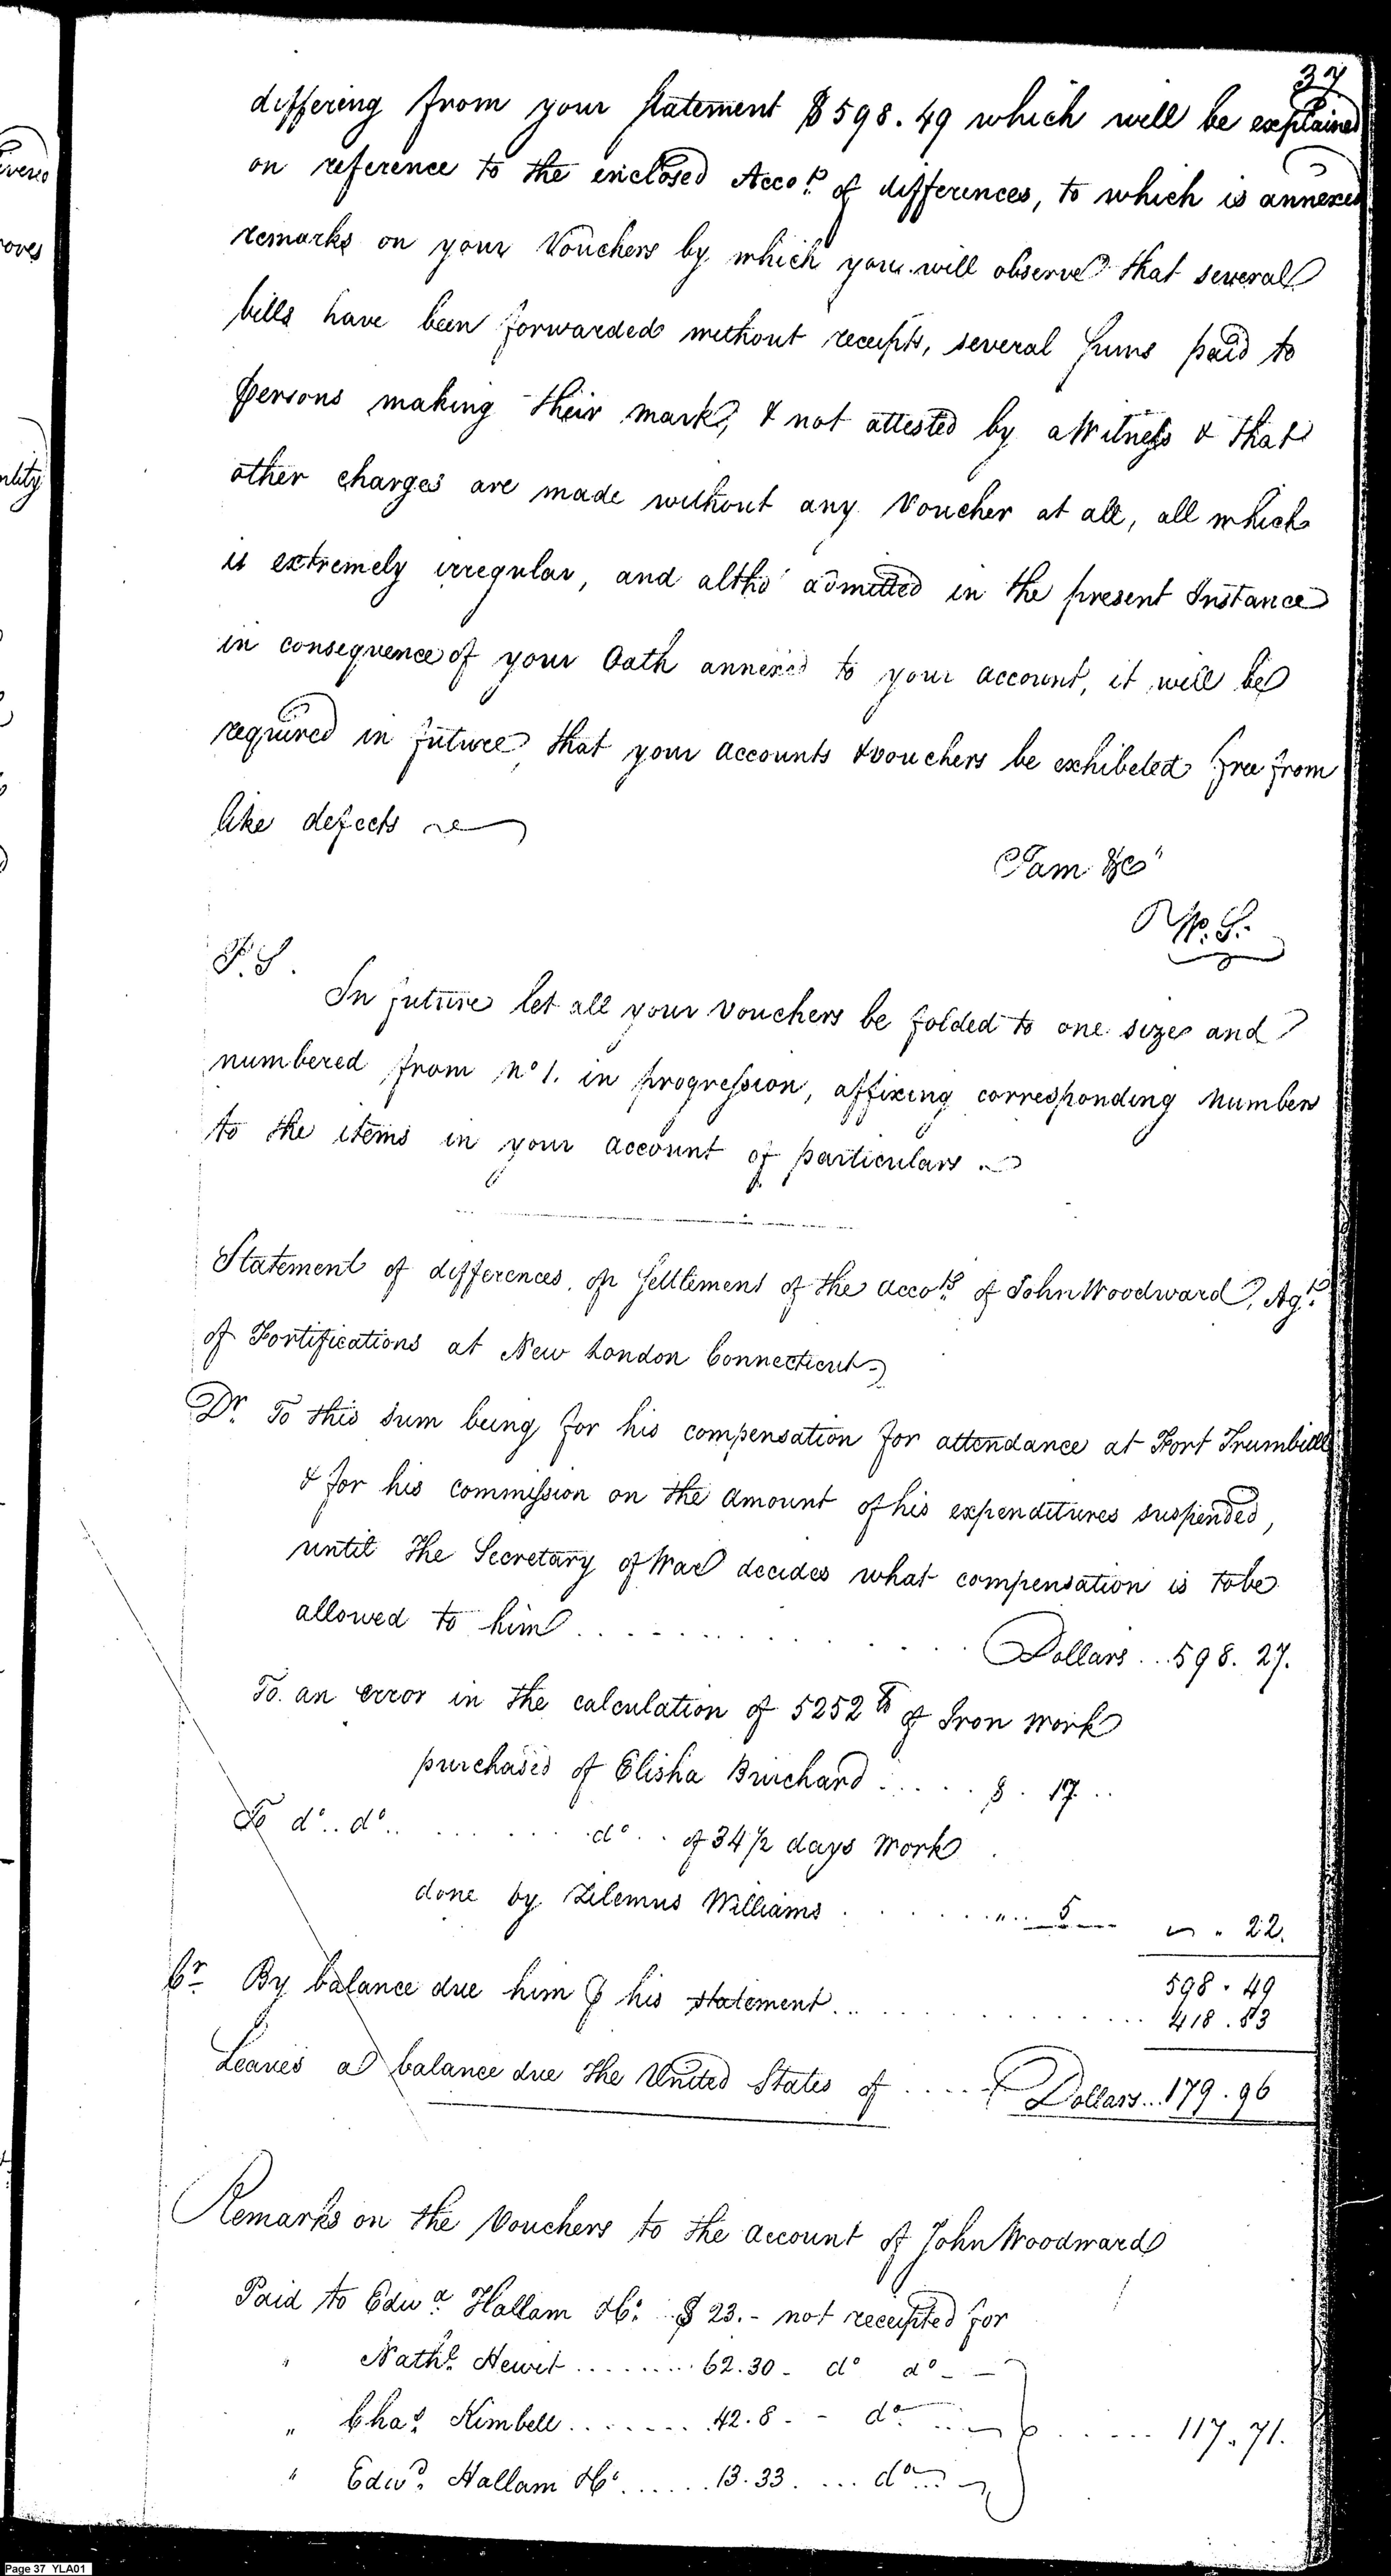 37
differing from your statement $598.49 which will be explained
on reference to the enclosed Acco.ts of differences, to which is annexed
remarks on your Vouchers by which you will observe that several
bills have been forwarded without receipts, several sums paid to
persons making their mark, & not attested by a Witness & that
other charges are made without any Voucher at all, all which
is extremely irregular, and altho' admitted in the present Instance
in consequence of your Oath annexed to your account, it will be
required in future, that your accounts & vouchers be exhibeted free from
like defects
I am &c"
W. S.
P. S.
In future let all your vouchers be folded to one size and
numbered from No 1. in progression, affixing corresponding numbers
to the items in your account of particulars.
Statement of differences, on Settlement of the acco.ts of John Woodward, Ag.t
of Fortifications at New London Connecticut
Dr. To this sum being for his compensation for attendance at Fort Trumbull
& for his commission on the amount of his expenditures suspended,
until the Secretary of War decides what compensation is to be
allowed to him . . . . . . . . . . Dollars . . . 598. 27.
To. an error in the calculation of 5252 lb of Iron work
purchased of Elisha Burchard . . . . . $ . 17 . .
To do .. do .. . . . . . . do . . of 34 1/2 days Work
done by Zilemus Williams . . . . . . " . . 5 — " 22.
598 . 49
Cr. By balance due him P his statement . . . . . . . . . . 418 . 53
Leaves a balance due the United States of . . . . . Dollars . . . 179 . 96
Remarks on the Vouchers to the account of John Woodward
Paid to Edwd. Hallam & Co. $ 23. - not receipted for
" Nathl. Hewit . . . . . . . . . 62.30 - do do - -
" Chas. Kimbell . . . . . . . 42.8 - - do . . . . . . . . . 117.71.
" Edwd. Hallam & Co. . . . . . 13.33 . . . . do . . .
Page 37 YLA01